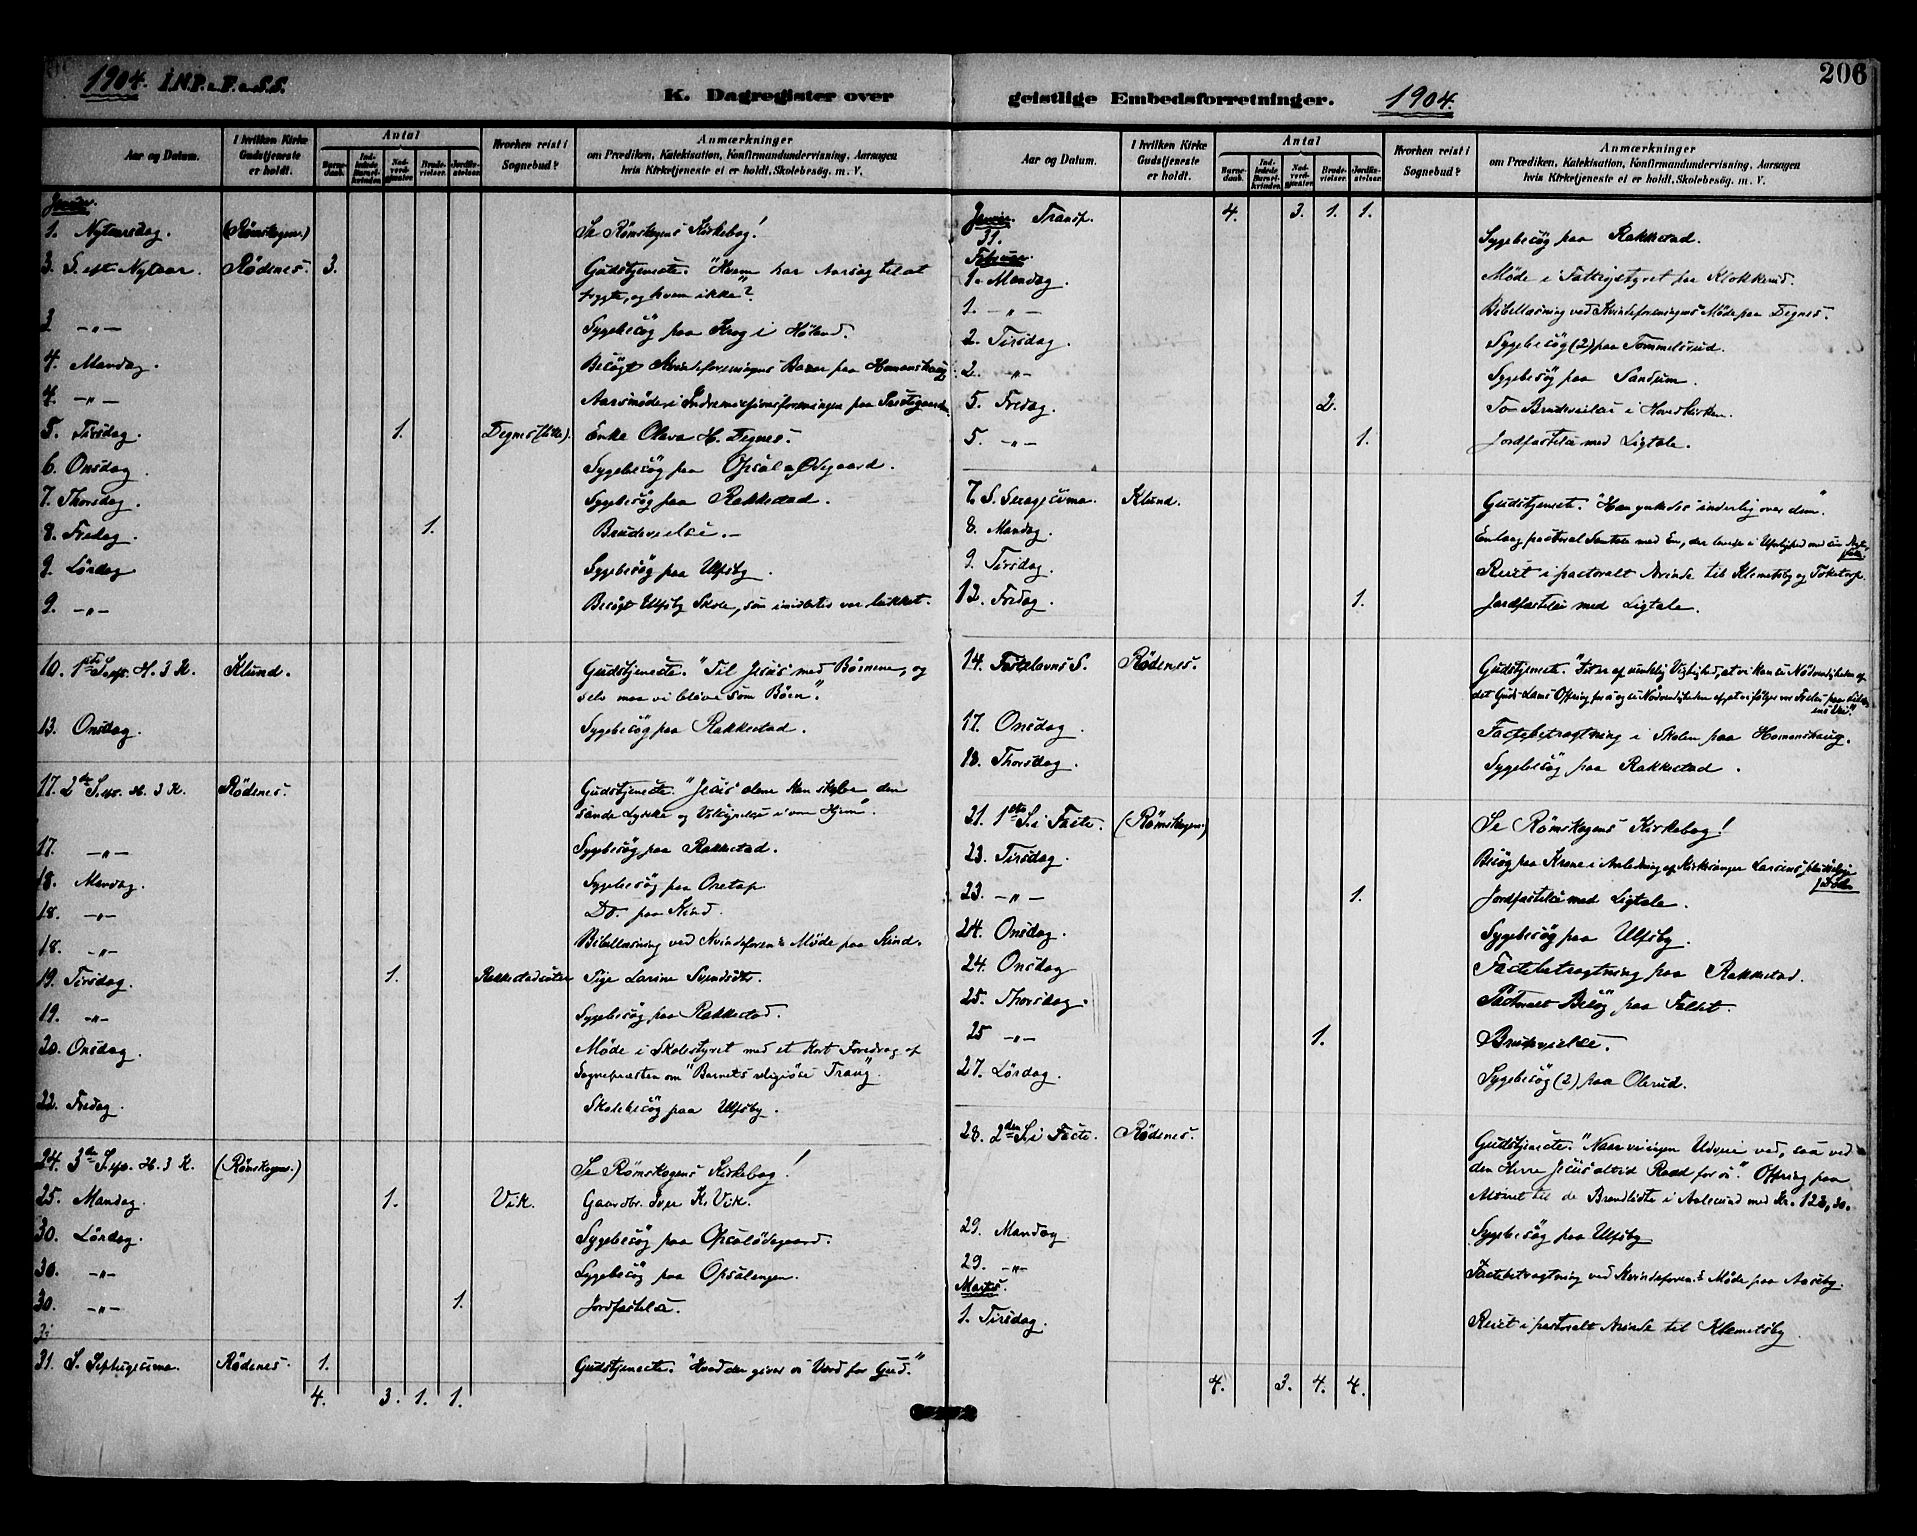 206
1904. I.N.P. a. F. a. S.S.
K. Dagregister over
geistlige Embedsforretninger. 1904.
Aar og Datum. I hvilken Kirke Gudstjeneste er holdt. Antal Barnedaab. Indledede Barselkvinder. Nadverdgjæster. Brudevielser. Jordfæstelser. Hvorhen reist i Sognebud? Anmærkninger om Prædiken, Katekisation, Konfirmandundervisning, Aarsagen hvis Kirketjeneste ei er holdt, Skolebesøg. m. V.
Januar.
1. Nytaarsdag. (Rømskogen.) Se Rømskogens Kirkebog!
3. S. eft. Nytaar. Rödenes. 3. Gudstjeneste. "Hvem har Aarsag til at
frygte, og hvem ikke?"
3 -"- Sygebesög paa Krog i Höland.
4. Mandag. Besögt Kvindeforeningens Bazar paa Homanshaug.
4. -"- Aarsmöde i Indremissionsforeningen paa
5. Tirsdag. 1. Degnes (lille). Enke Olava H. Degnes.
6. Onsdag. Sygebesög paa Opsal Ödegaard.
7. Thorsdag. Sygebesög paa Rakkestad.
8. Fredag. 1. Brudevielse.
9. Lördag Sygebesög paa Ulfsby.
9. -"- Besögt Ulfsby Skole, som imidlertid var lukket.
10. 1ste S. ep. H. 3 K. Klund. Gudstjeneste. "Til Jesus med Börnene, og
selv maa vi blive som Börn".
13. Onsdag. Sygebesög paa Rakkestad.
17. 2den S. ep. H. 3 K. Rödenes. Gudstjeneste. "Jesus alene kan skabe den
sande Lykke og Velsignelse i vore Hjem".
17. -"- Sygebesög paa Rakkestad.
18. Mandag. Sygebesög paa Oretap
18. -"- Do. paa Kind.
18. -"- Bibellæsning ved Kvindeforen:s Möde paa Kind.
19. Tirsdag. 1. Rakkestadsæter Pige Larine Svendsdtr.
19. -"- Sygebesög paa Rakkestad.
20. Onsdag. Möde i Skolestyret med et kort Foredrag af
Sognepræsten om "Barnets religiöse Trang".
22. Fredag. Skolebesög paa Ulfsby.
24. 3de S. ep. H. 3 K. (Rømskogen.) Se Rømskogens Kirkebog!
25. Mandag. 1. Vik. Gaardbr. Iver K. Vik.
30. Lördag. Sygebesög paa Opsalödegaard.
30. -"- Sygebesög paa Opsalengen.
30. -"- 1. Jordfæstelse.
31. S. Septuagesima. Rödenes. 1. Gudstjeneste. "Hvad der giver os Værd for Gud."
4. 3. 1. 1.
Aar og Datum. I hvilken Kirke Gudstjeneste er holdt. Antal Barnedaab. Indledede Barselkvinder. Nadverdgjæster. Brudevielser. Jordfæstelser. Hvorhen reist i Sognebud? Anmærkninger om Prædiken, Katekisation, Konfirmandundervisning, Aarsagen hvis Kirketjeneste ei er holdt, Skolebesøg. m. V.
Januar. Transp. 4. 3. 1. 1.
31. Sygebesög paa Rakkestad.
Februar.
1. Mandag. Möde i Fattigstyret paa Klokkerud.
1. -"- Bibellæsning ved Kvindeforeningens Möde paa Degnes.
2. Tirsdag. Sygebesög (2) paa Tommelsrud.
2. -"- Sygebesög paa Sandum.
5. Fredag. 2. To Brudevielser i Hovedkirken.
5. -"- 1. Jordfæstelse med Ligtale.
7. S. Sexagesima. Klund. Gudstjeneste. "Han ynkedes inderlig over dem".
8. Mandag. En lang pastoral Samtale med En, der levede i Uforlighed med sin
9. Tirsdag. Reist i pastoralt Ærinde til Klemetsby og Toketorp.
12. Fredag. 1. Jordfæstelse med Ligtale.
14. Fastelavns S. Rödenes. Gudstjeneste. "Det er af uendelig Vigtighed, at vi kan se Nödvendigheden af
det Guds-Lams Offring for os og se Nödvendigheden af at vi fölger vor Frelser paa Lidelsens Vei."
17. Onsdag. Fastebetragtning i Skolen paa Homanshaug.
18. Thorsdag. Sygebesög paa Rakkestad.
21. 1ste S. i Faste. (Rømskogen.) Se Rømskogens Kirkebog!
23. Tirsdag. Besög paa Krone i Anledning af Kirkesanger Larsens pludselige Död.
23. -"- 1. Jordfæstelse med Ligtale.
24. Onsdag. Sygebesög paa Ulfsby.
24. Onsdag Fastebetragtning paa Rakkestad.
25. Thorsdag. Pastoralt Besög paa
25 -"- 1. Brudevielse.
27. Lördag. Sygebesög (2) paa Olerud.
28. 2den S. i Faste. Rödenes. Gudstjeneste. "Naar vi ingen Udvei ved, saa ved
den Herre Jesus altid Raad for os." Offring paa
Alteret til de Brandlidte i Aalesund med Kr. 128,30.
29. Mandag Sygebesög paa Ulfsby
29. -"- Fastebetragtning ved Kvindeforen:s Möde paa Aaseby.
Marts.
1. Tirsdag. Reist i pastoralt Ærinde til Klemetsby
4. 3. 4. 4.